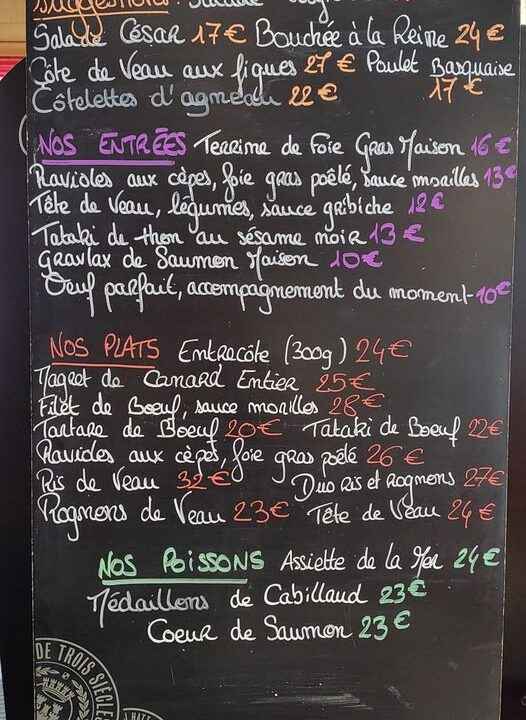 suggestions: Salade
Salade César 17€ Bouchée à la Reine 24€
Côte de Veau aux figues 27€ Poulet Basquaise
Côtelettes d'agneau 22€ 17€
NOS ENTRÉES Terrine de Foie Gras Maison 16€
Ravioles aux cèpes, foie gras poêlé, sauce morilles 13€
Tête de Veau, légumes, sauce gribiche 12€
Tataki de thon au sésame noir 13€
Gravlax de Saumon Maison 10€
Oeuf parfait, accompagnement du moment-10€
NOS PLATS Entrecôte (300g) 24€
Magret de Canard Entier 25€
Filet de Boeuf, sauce morilles 28€
Tartare de Boeuf 20€ Tataki de Boeuf 22€
Ravioles aux cèpes, foie gras poêlé 26€
Ris de Veau 32€ Duo Ris et Rognons 27€
Rognons de Veau 23€ Tête de Veau 24€
NOS POISSONS Assiette de la Mer 24€
Médaillons de Cabillaud 23€
Coeur de Saumon 23€
DE TROIS SIÈCLES